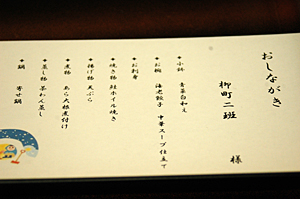 おしながき
柳町二班 様
◆小鉢 青菜白和え
◆お椀 海老餃子 中華スープ仕立て
◆お刺身
◆焼き物 鮭ホイル焼き
◆揚げ物 天ぷら
◆煮物 あら大根煮付け
◆蒸し物 茶わん蒸し
◆鍋 寄せ鍋